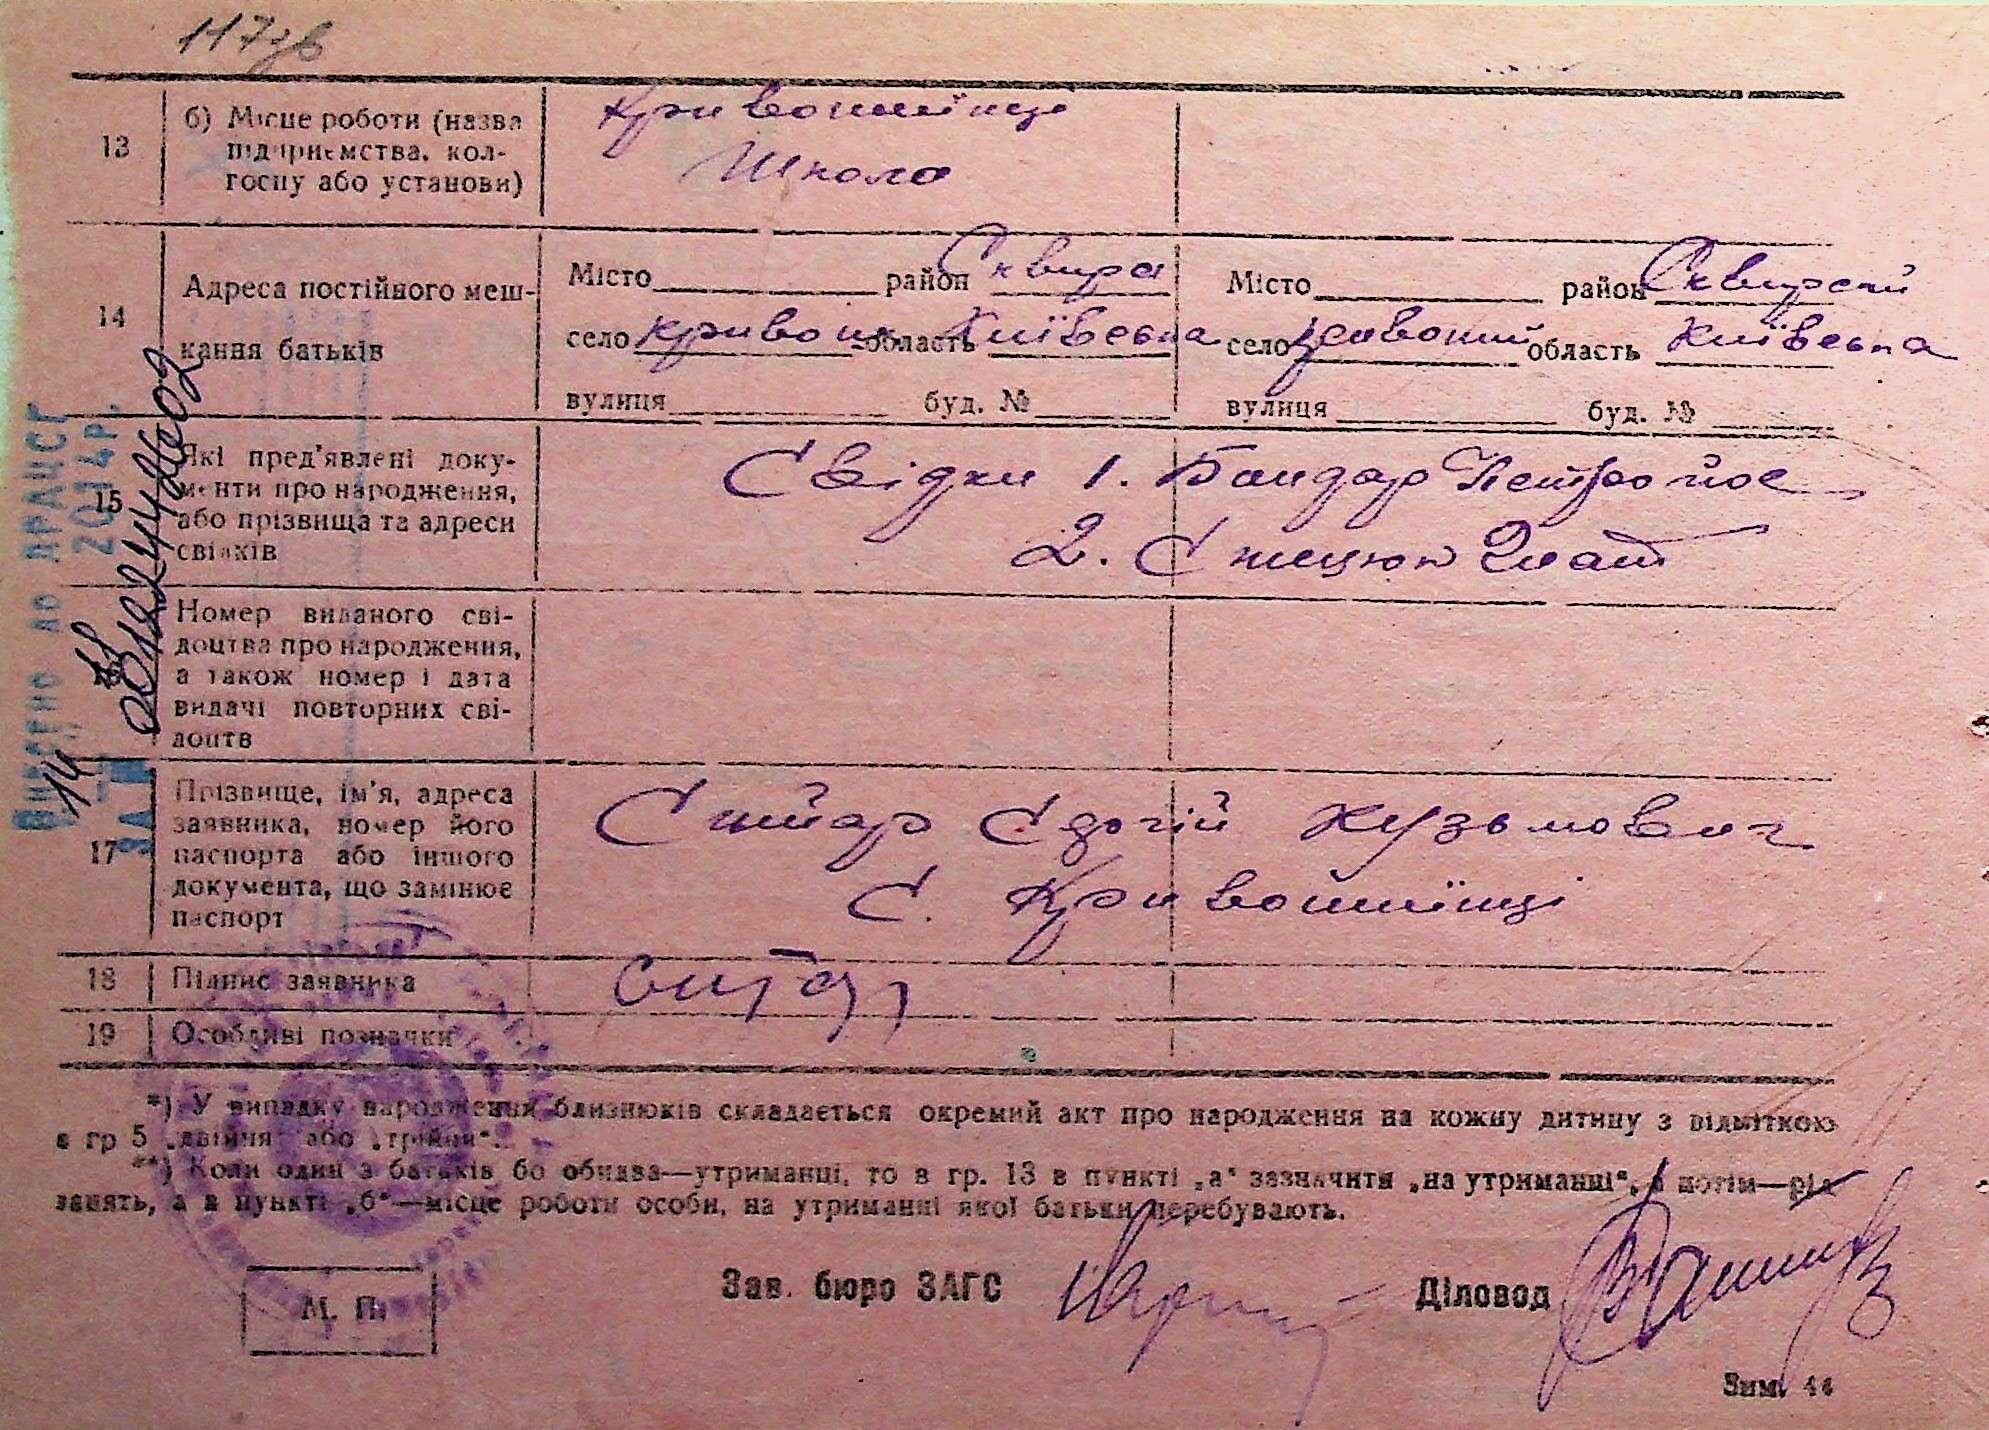 117зв
13
б) Місце роботи (назва
підприємства, кол-
госпу або установи)
Кривошиїнці
Школа
14
Адреса постійного меш-
кання батьків
Місто район Сквира
село Кривош. область Київська
вулиця буд. №
Місто район Сквирський
село Кривоший область Київська
вулиця буд. №
15
Які пред'явлені доку-
менти про народження,
або прізвища та адреси
свідків
Свідки 1. Бондар
2.
16
Номер виданого сві-
доцтва про народження,
а також номер і дата
видачі повторних сві-
доцтв
17
Прізвище, ім'я, адреса
заявника, номер його
паспорта або іншого
документа, що замінює
паспорт
Кузьмович
с. Кривошиїнці
18
Підпис заявника
19
Особливі позначки
*) У випадку народження близнюків складається окремий акт про народження на кожну дитину з відміткою
в гр 5 „двійня" або „трійня".
**) Коли один з батьків бо обидва—утриманці, то в гр. 13 в пункті „а" зазначити „на утриманці", а потім—рід
занять, а в пункті „б"—місце роботи особи, на утриманні якої батьки перебувають.
М. П.
Зав. бюро ЗАГС
Діловод
Зим. 44
Внесено до ДРАЦСГ
14 11 2014р.
ЗА №